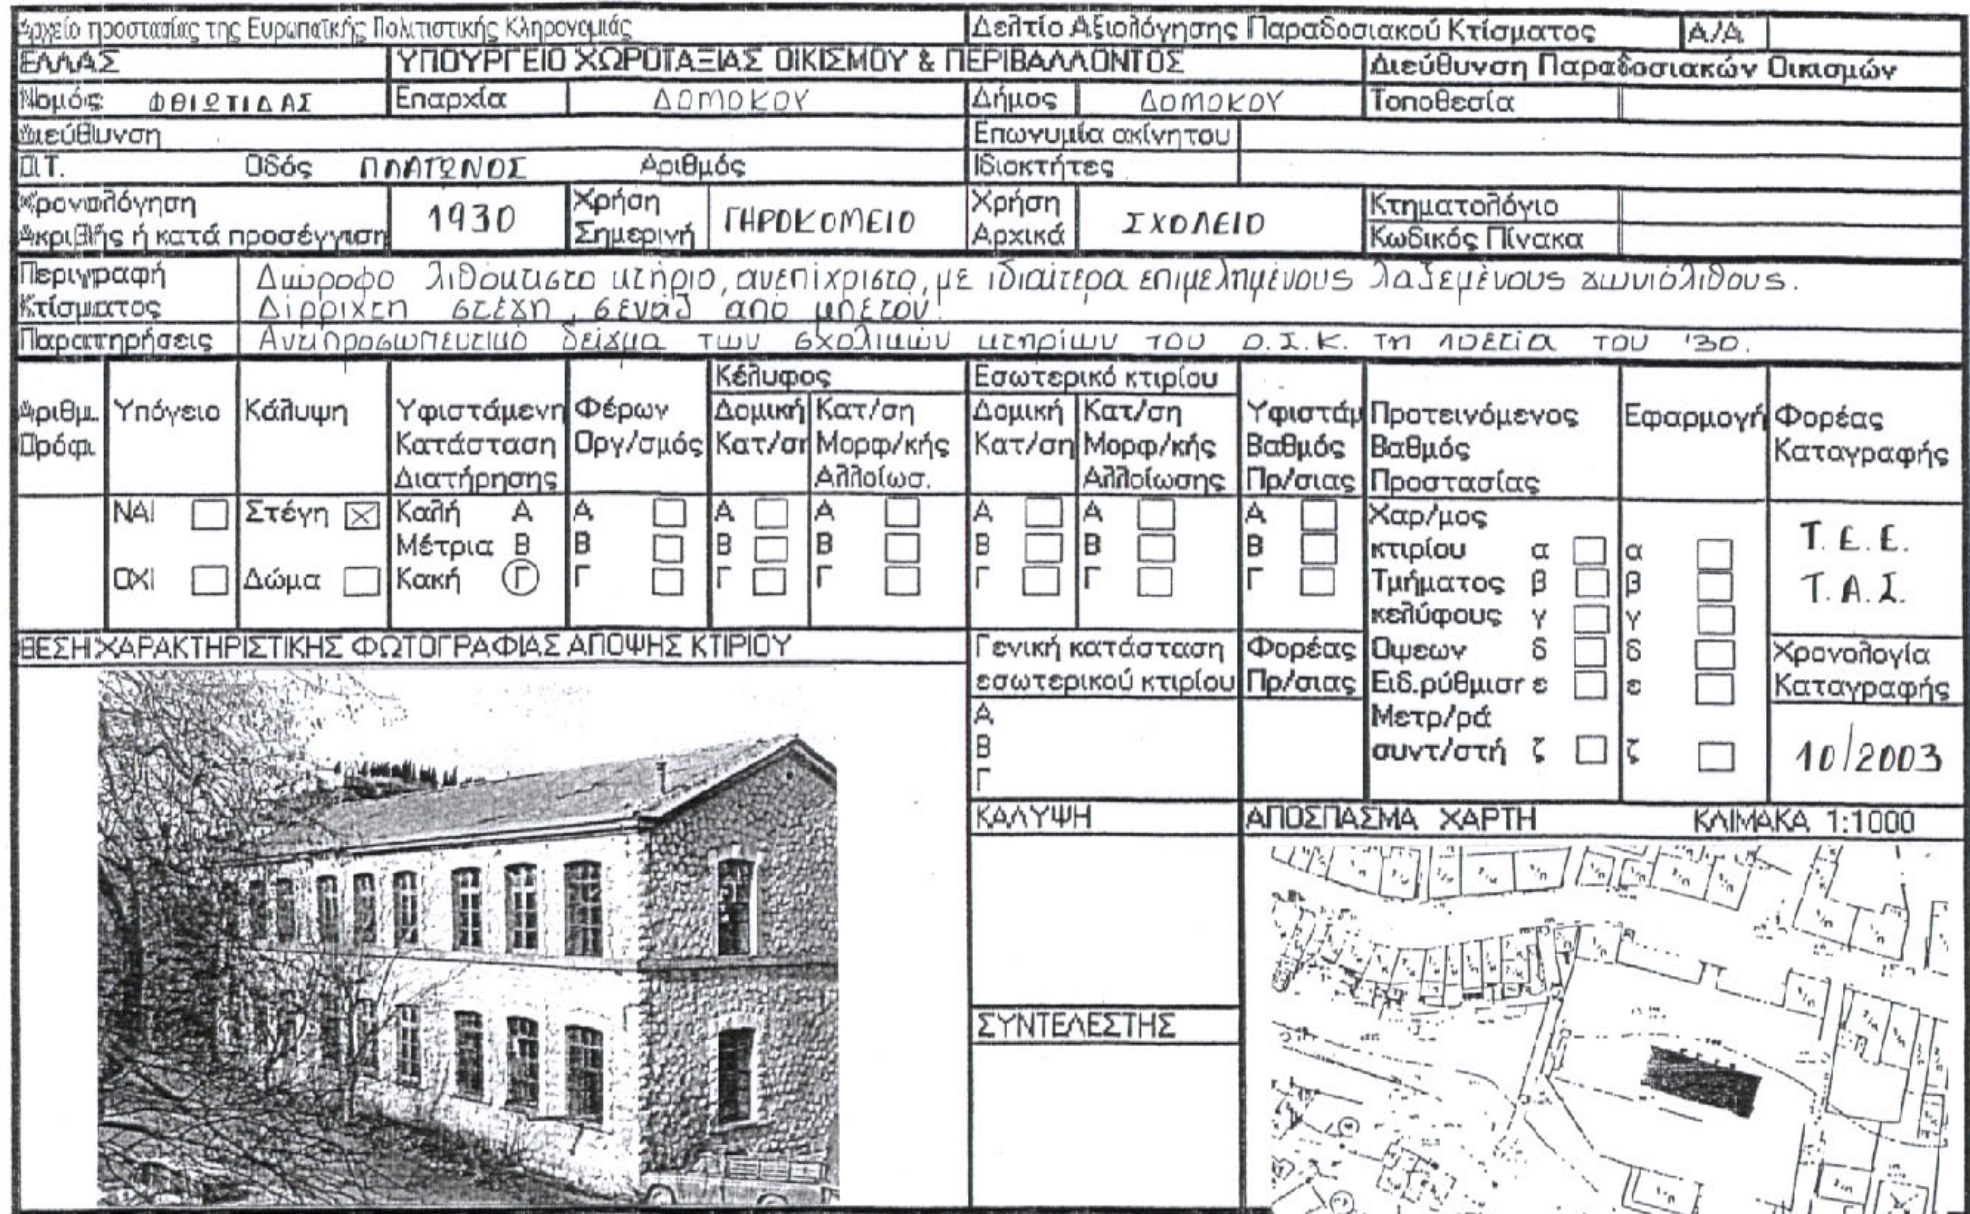 Αρχείο προστασίας της Ευρωπαϊκής Πολιτιστικής Κληρονομιάς
Δελτίο Αξιολόγησης Παραδοσιακού Κτίσματος Α/Α
ΕΛΛΑΣ ΥΠΟΥΡΓΕΙΟ ΧΩΡΟΤΑΞΙΑΣ ΟΙΚΙΣΜΟΥ & ΠΕΡΙΒΑΛΛΟΝΤΟΣ Διεύθυνση Παραδοσιακών Οικισμών
Νομός: ΦΘΙΩΤΙΔΑΣ Επαρχία ΔΟΜΟΚΟΥ Δήμος ΔΟΜΟΚΟΥ Τοποθεσία
Διεύθυνση Επωνυμία ακίνητου
Ο.Τ. Οδός ΠΛΑΤΩΝΟΣ Αριθμός Ιδιοκτήτες
Χρονολόγηση
Ακριβής ή κατά προσέγγιση 1930
Χρήση
Σημερινή ΓΗΡΟΚΟΜΕΙΟ
Χρήση
Αρχικά ΣΧΟΛΕΙΟ
Κτηματολόγιο
Κωδικός Πίνακα
Περιγραφή
Κτίσματος
Διώροφο λιθόκτιστο κτήριο, ανεπίχριστο, με ιδιαίτερα επιμελημένους λαξεμένους γωνιόλιθους.
Δίρριχτη στέγη, σενάζ από μπετόν.
Παρατηρήσεις Αντιπροσωπευτικό δείγμα των σχολικών κτηρίων του Ο.Σ.Κ. τη 10ετία του '30.
Αριθμ.
Πρόφ.
Υπόγειο
Κάλυψη
Υφιστάμενη
Κατάσταση
Διατήρησης
Φέρων
Οργ/σμός
Κέλυφος
Δομική
Κατ/ση
Κατ/ση
Μορφ/κής
Αλλοίωσ.
Εσωτερικό κτιρίου
Δομική
Κατ/ση
Κατ/ση
Μορφ/κής
Αλλοίωσης
Υφιστάμ
Βαθμός
Πρ/σιας
Προτεινόμενος
Βαθμός
Προστασίας
Εφαρμογή
Φορέας
Καταγραφής
ΝΑΙ
ΟΧΙ
Στέγη
Δώμα
Καλή Α
Μέτρια Β
Κακή Γ
Α
Β
Γ
Α
Β
Γ
Α
Β
Γ
Α
Β
Γ
Α
Β
Γ
Α
Β
Γ
Χαρ/μος
κτιρίου α
Τμήματος β
κελύφους γ
Οψεων δ
Ειδ.ρύθμιση ε
Μετρ/ρά
συντ/στή ζ
α
β
γ
δ
ε
ζ
Τ.Ε.Ε.
Τ.Α.Σ.
Χρονολογία
Καταγραφής
10/2003
ΘΕΣΗ ΧΑΡΑΚΤΗΡΙΣΤΙΚΗΣ ΦΩΤΟΓΡΑΦΙΑΣ ΑΠΟΨΗΣ ΚΤΙΡΙΟΥ
Γενική κατάσταση
εσωτερικού κτιρίου
Α
Β
Γ
Φορέας
Πρ/σιας
ΚΑΛΥΨΗ
ΣΥΝΤΕΛΕΣΤΗΣ
ΑΠΟΣΠΑΣΜΑ ΧΑΡΤΗ ΚΛΙΜΑΚΑ 1:1000